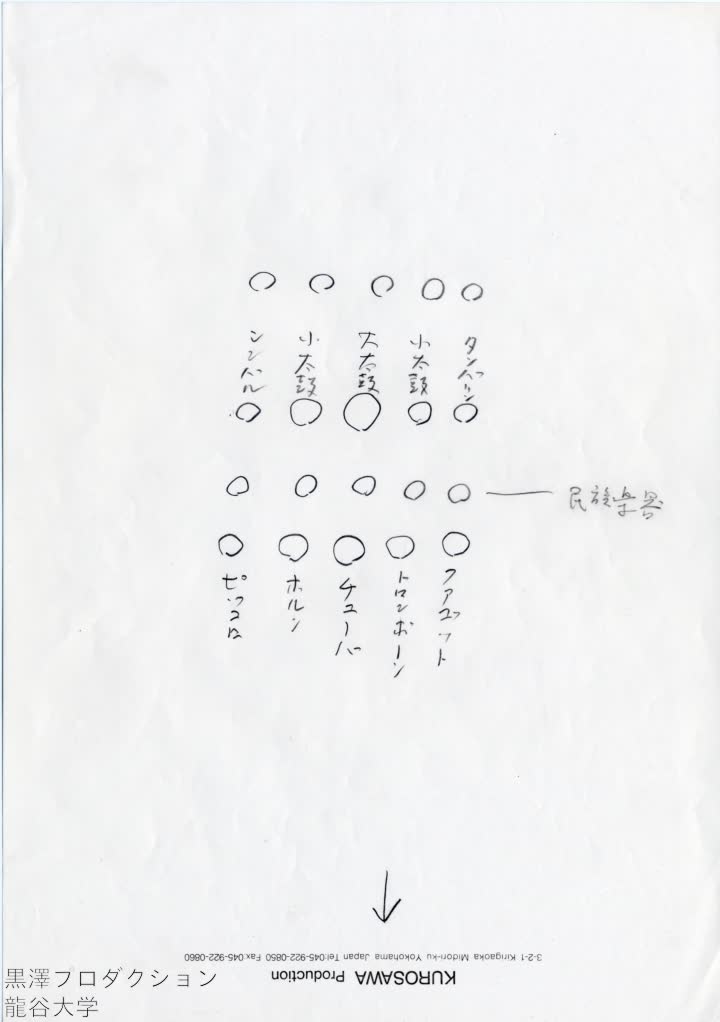 タンバリン
小太鼓
大太鼓
小太鼓
シンバル
民族楽器
ファゴット
トロンボーン
チューバ
ホルン
ピッコロ
3-2-1 Kirigaoka Midori-ku Yokohama Japan Tel:045-922-0850 Fax:045-922-0860
KUROSAWA Production
黒澤プロダクション
龍谷大学